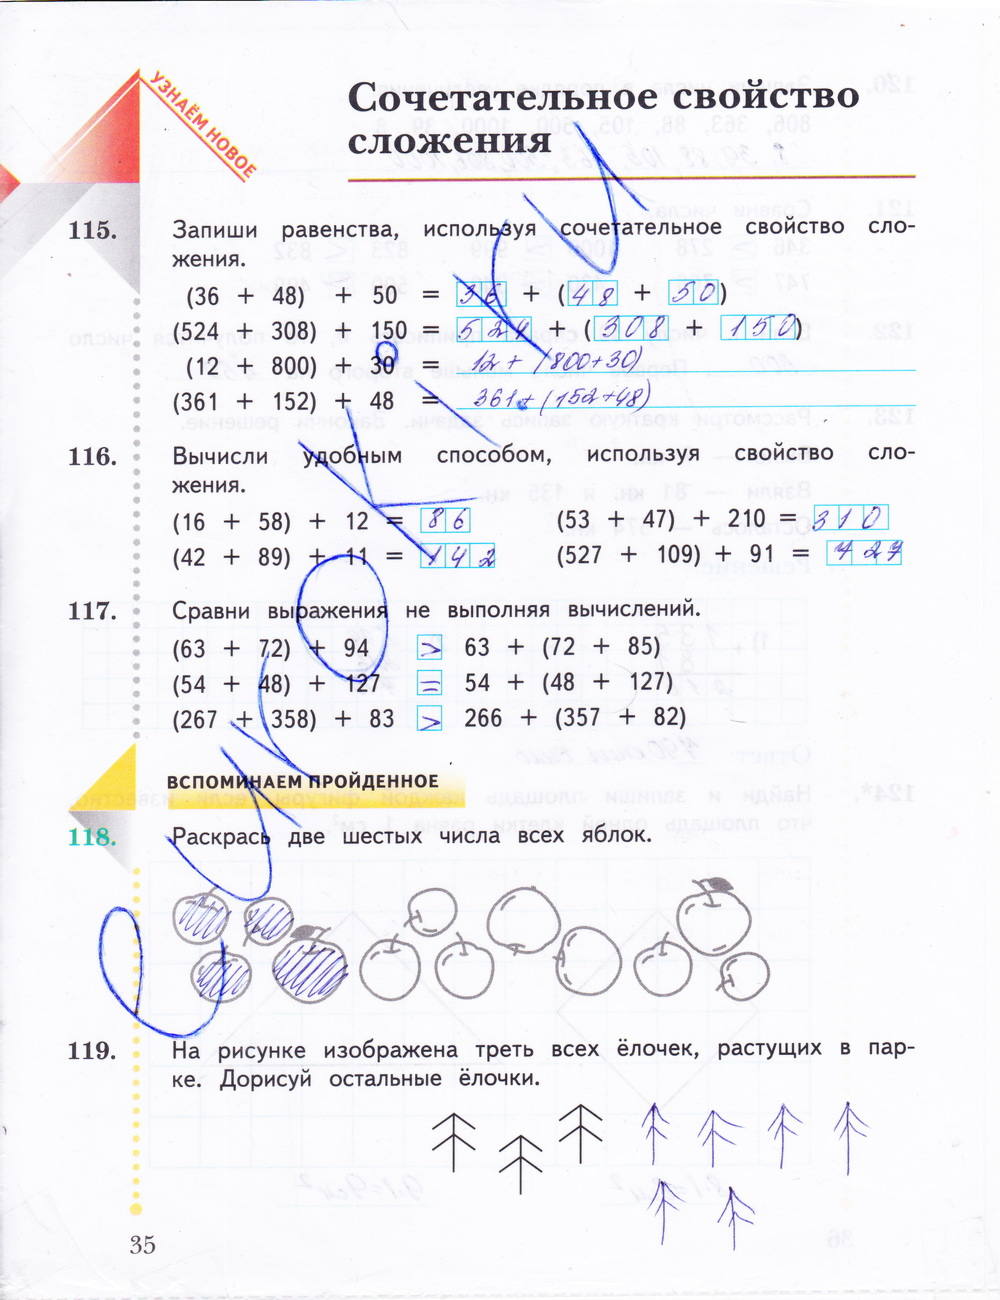 УЗНАЁМ НОВОЕ
Сочетательное свойство
сложения
115. Запиши равенства, используя сочетательное свойство сло-
жения.
(36 + 48) + 50 = 36 + (48 + 50)
(524 + 308) + 150 = 524 + (308 + 150)
(12 + 800) + 30 = 12 + (800+30)
(361 + 152) + 48 = 361 + (152+48)
116. Вычисли удобным способом, используя свойство сло-
жения.
(16 + 58) + 12 = 86 (53 + 47) + 210 = 310
(42 + 89) + 11 = 142 (527 + 109) + 91 = 727
117. Сравни выражения не выполняя вычислений.
(63 + 72) + 94 > 63 + (72 + 85)
(54 + 48) + 127 = 54 + (48 + 127)
(267 + 358) + 83 > 266 + (357 + 82)
ВСПОМИНАЕМ ПРОЙДЕННОЕ
118. Раскрась две шестых числа всех яблок.
119. На рисунке изображена треть всех ёлочек, растущих в пар-
ке. Дорисуй остальные ёлочки.
35